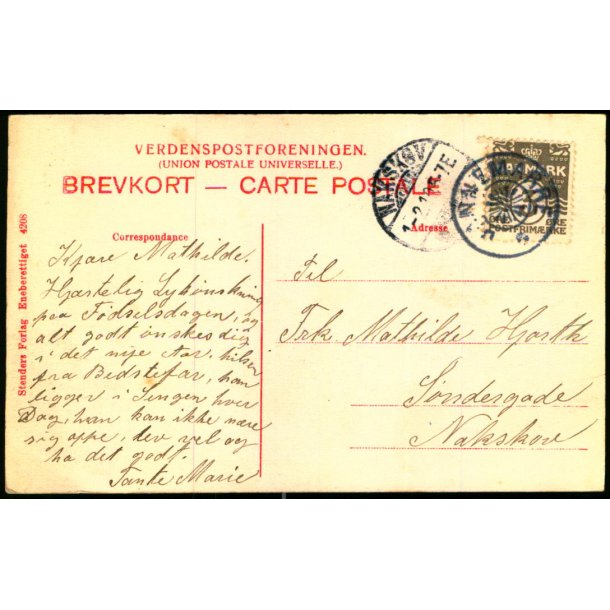 VERDENSPOSTFORENINGEN.
(UNION POSTALE UNIVERSELLE.)
BREVKORT — CARTE POSTALE
NAKSKOV
DANMARK
POSTFRIMÆRKE
Correspondance
Adresse
Stenders Forlag Eneberettiget 4208
Kjære Mathilde.
Hjærtelig Lykönskning
paa Födselsdagen, og
alt godt önskes dig
i det nije Aar, hilsen
fra Bedstefar, han
ligger i Sengen hver
Dag, han kan ikke være
sig oppe, lev vel og
ha det godt.
Tante Marie
Til
Frk Mathilde
Söndergade
Nakskov